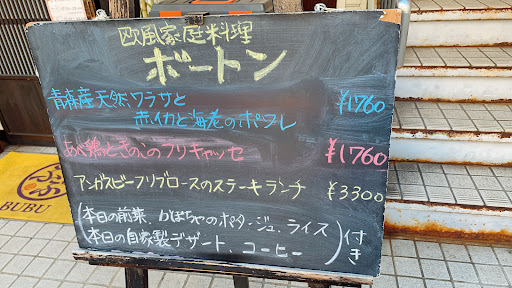 欧風家庭料理
ボートン
青森産天然ワラサと
赤イカと海老のポワレ ¥1760
あべ鶏ときのこのフリカッセ ¥1760
アンガスビーフリブロースのステーキランチ ¥3300
(本日の前菜、かぼちゃのポタージュ、ライス
本日の自家製デザート、コーヒー)付き
ぶぶ
BUBU